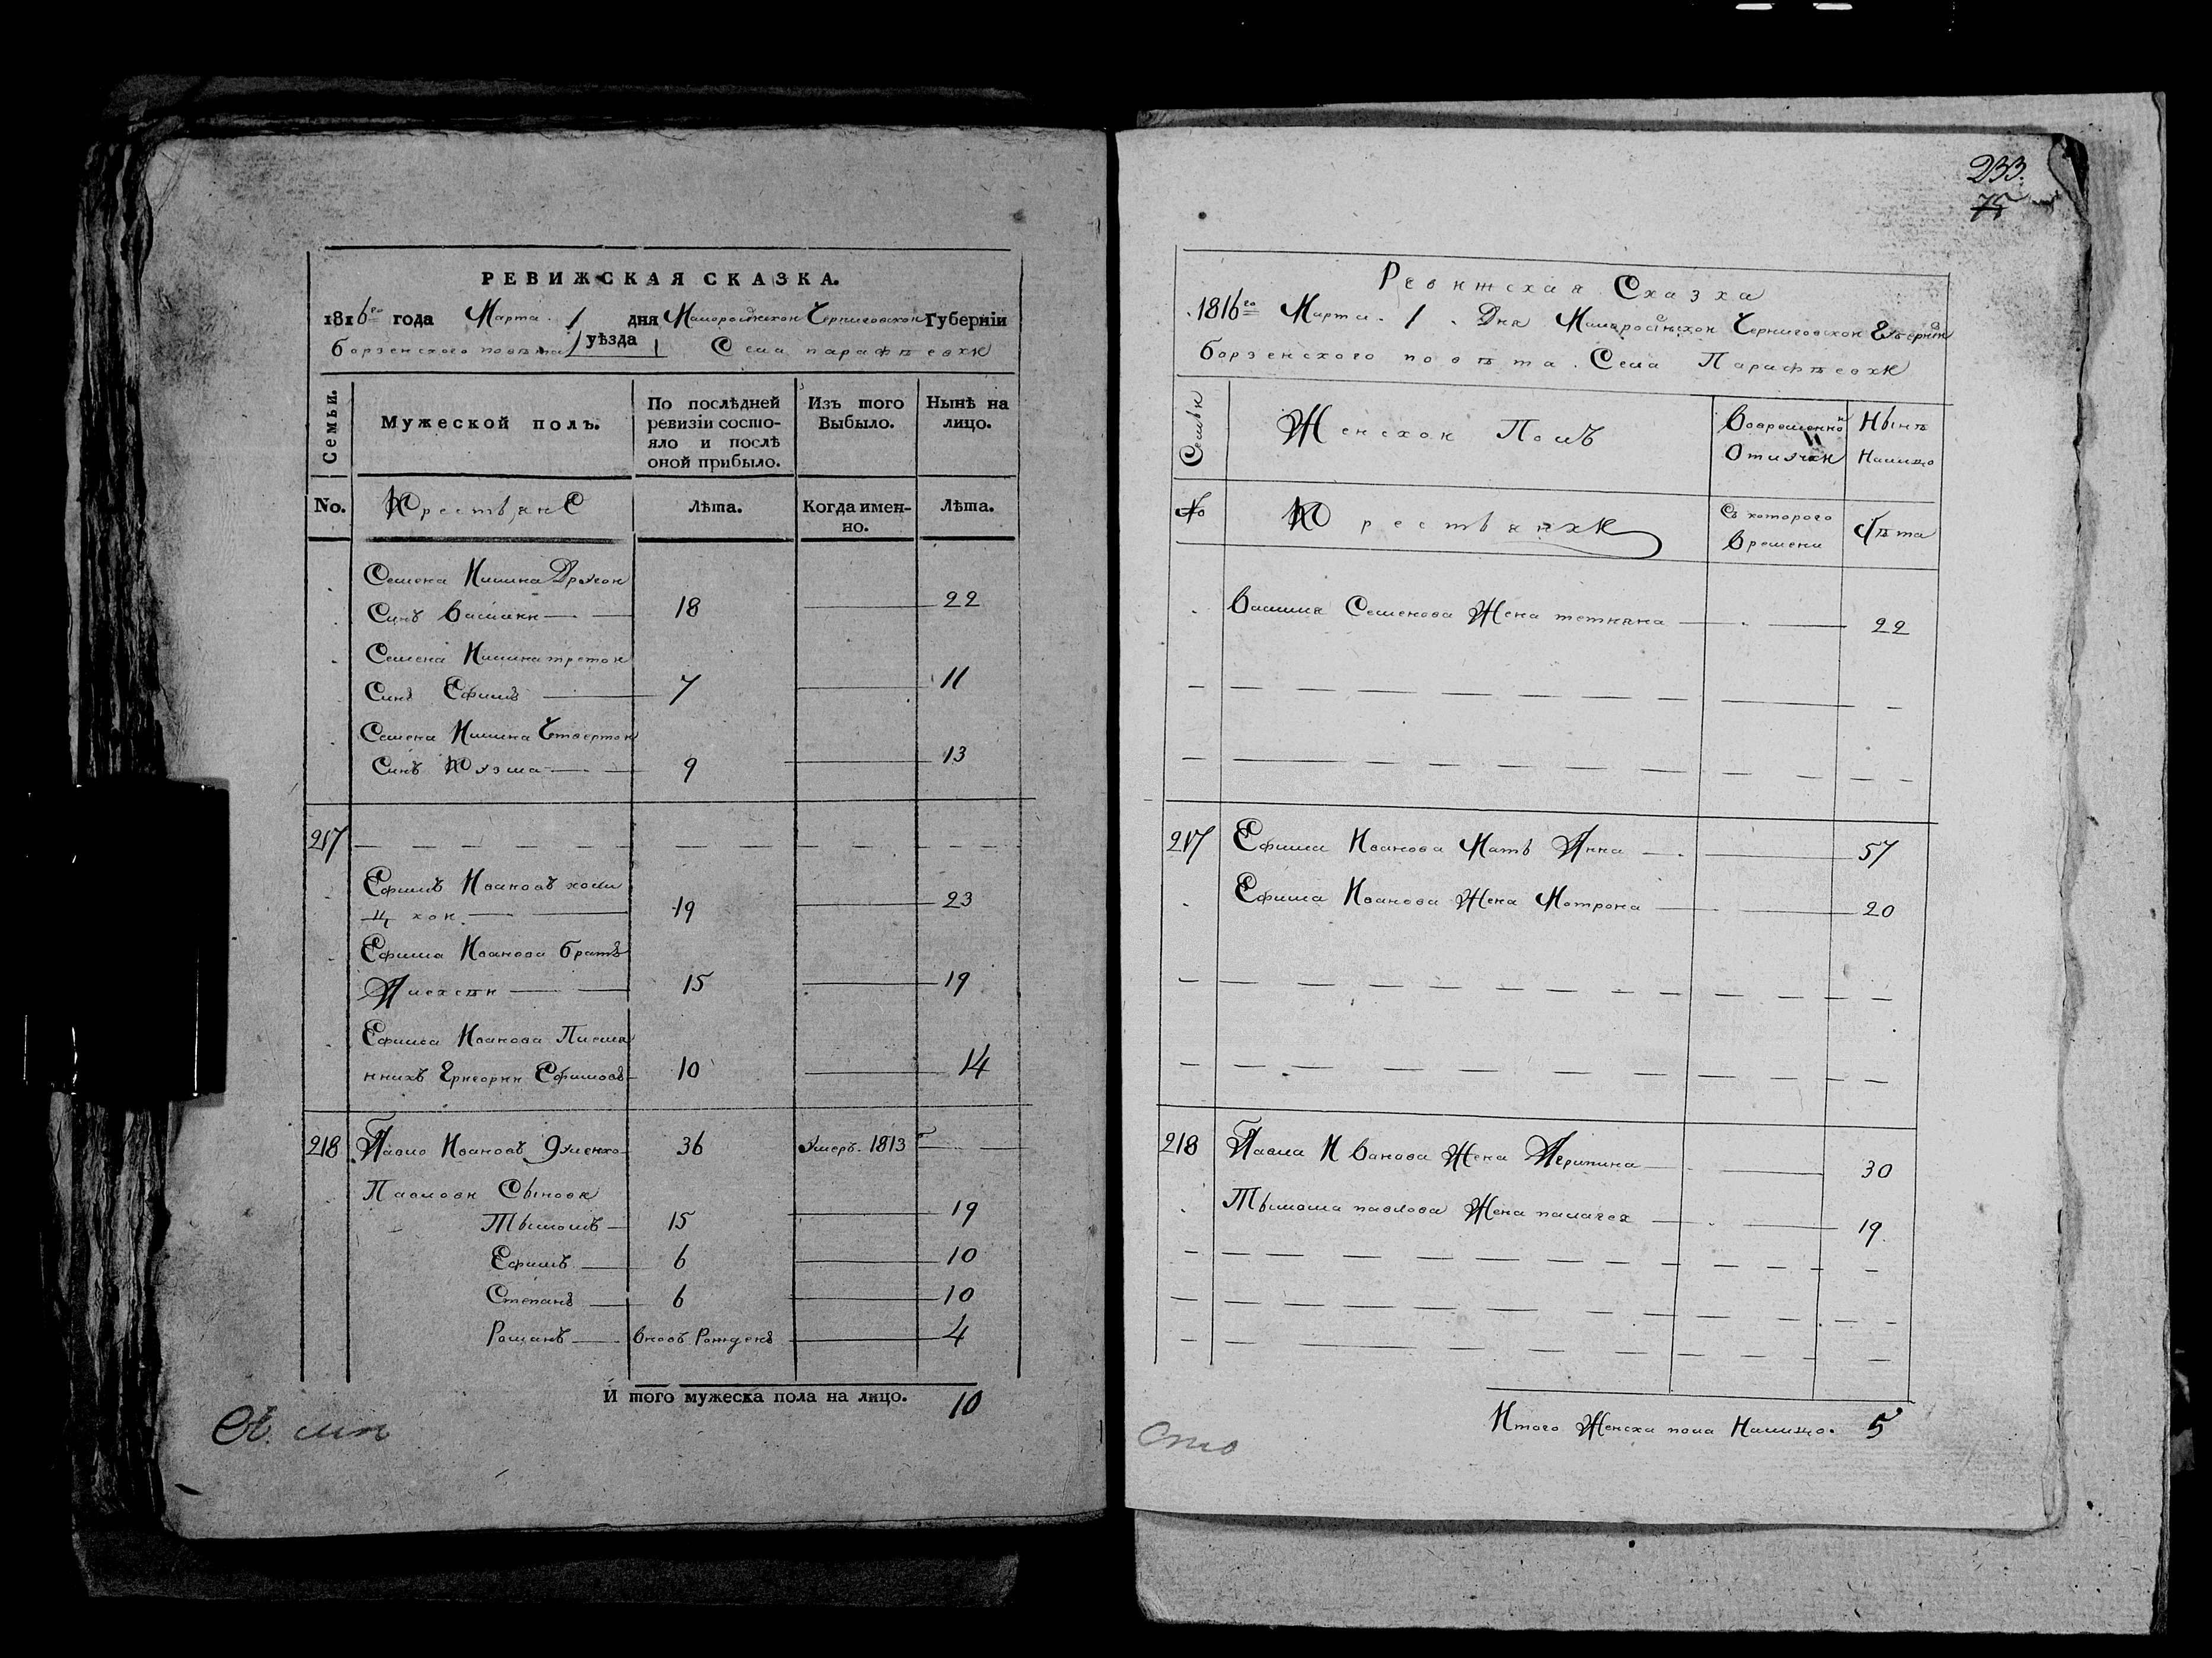 РЕВИЖСКАЯ СКАЗКА.
1816го года Марта 1 дня Малоросійской Черниговской Губерніи
борзенского повѣта уѣзда Села парафѣевки
Семьи.
Мужеской полъ.
По послѣдней ревизіи состо-
яло и послѣ
оной прибыло.
Изъ того
Выбыло.
Нынѣ на
лицо.
No.
Крестьяне
Лѣта.
Когда имен-
но.
Лѣта.
Семена Ильина Другой
Синъ Василий 18 22
Семена Ильина третой
Синъ Ефимъ 7 11
Семена Ильина Четвертой
Синъ Кузма 9 13
217
Ефимъ Ивановъ
19 23
Ефима Иванова братъ
Алексѣй 15 19
Ефима Иванова Племя
нникъ Григорий Ефимовъ 10 14
218 Павло Ивановъ 36 Умеръ 1813
Павлови Сыновя
Тымошъ 15 19
Ефимъ 6 10
Степанъ 6 10
Романъ вновъ Рожденъ 4
И того мужеска пола на лицо. 10
233.
75
Ревижская Сказка
1816го Марта 1 Дня Малоросійской Черниговской Губерніи
борзенского повѣта Села Парафѣевки
Семьи
Женской Полъ
Вовременной
Отлучки
Нынѣ
Налицо
№
Крестьянки
Съ которого
Времени
Лѣта
Василия Семенова Жена тетияна 22
217 Ефима Иванова Мать Анна 57
Ефима Иванова Жена Мотрона 20
218 Павла Иванова Жена Агрипина 30
Тымоша павлова Жена палагея 19
Итого Женска пола Налицо. 5